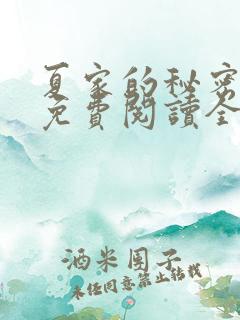 夏家的秘密
免費閱讀全
酒米团子
未经同意禁止转载